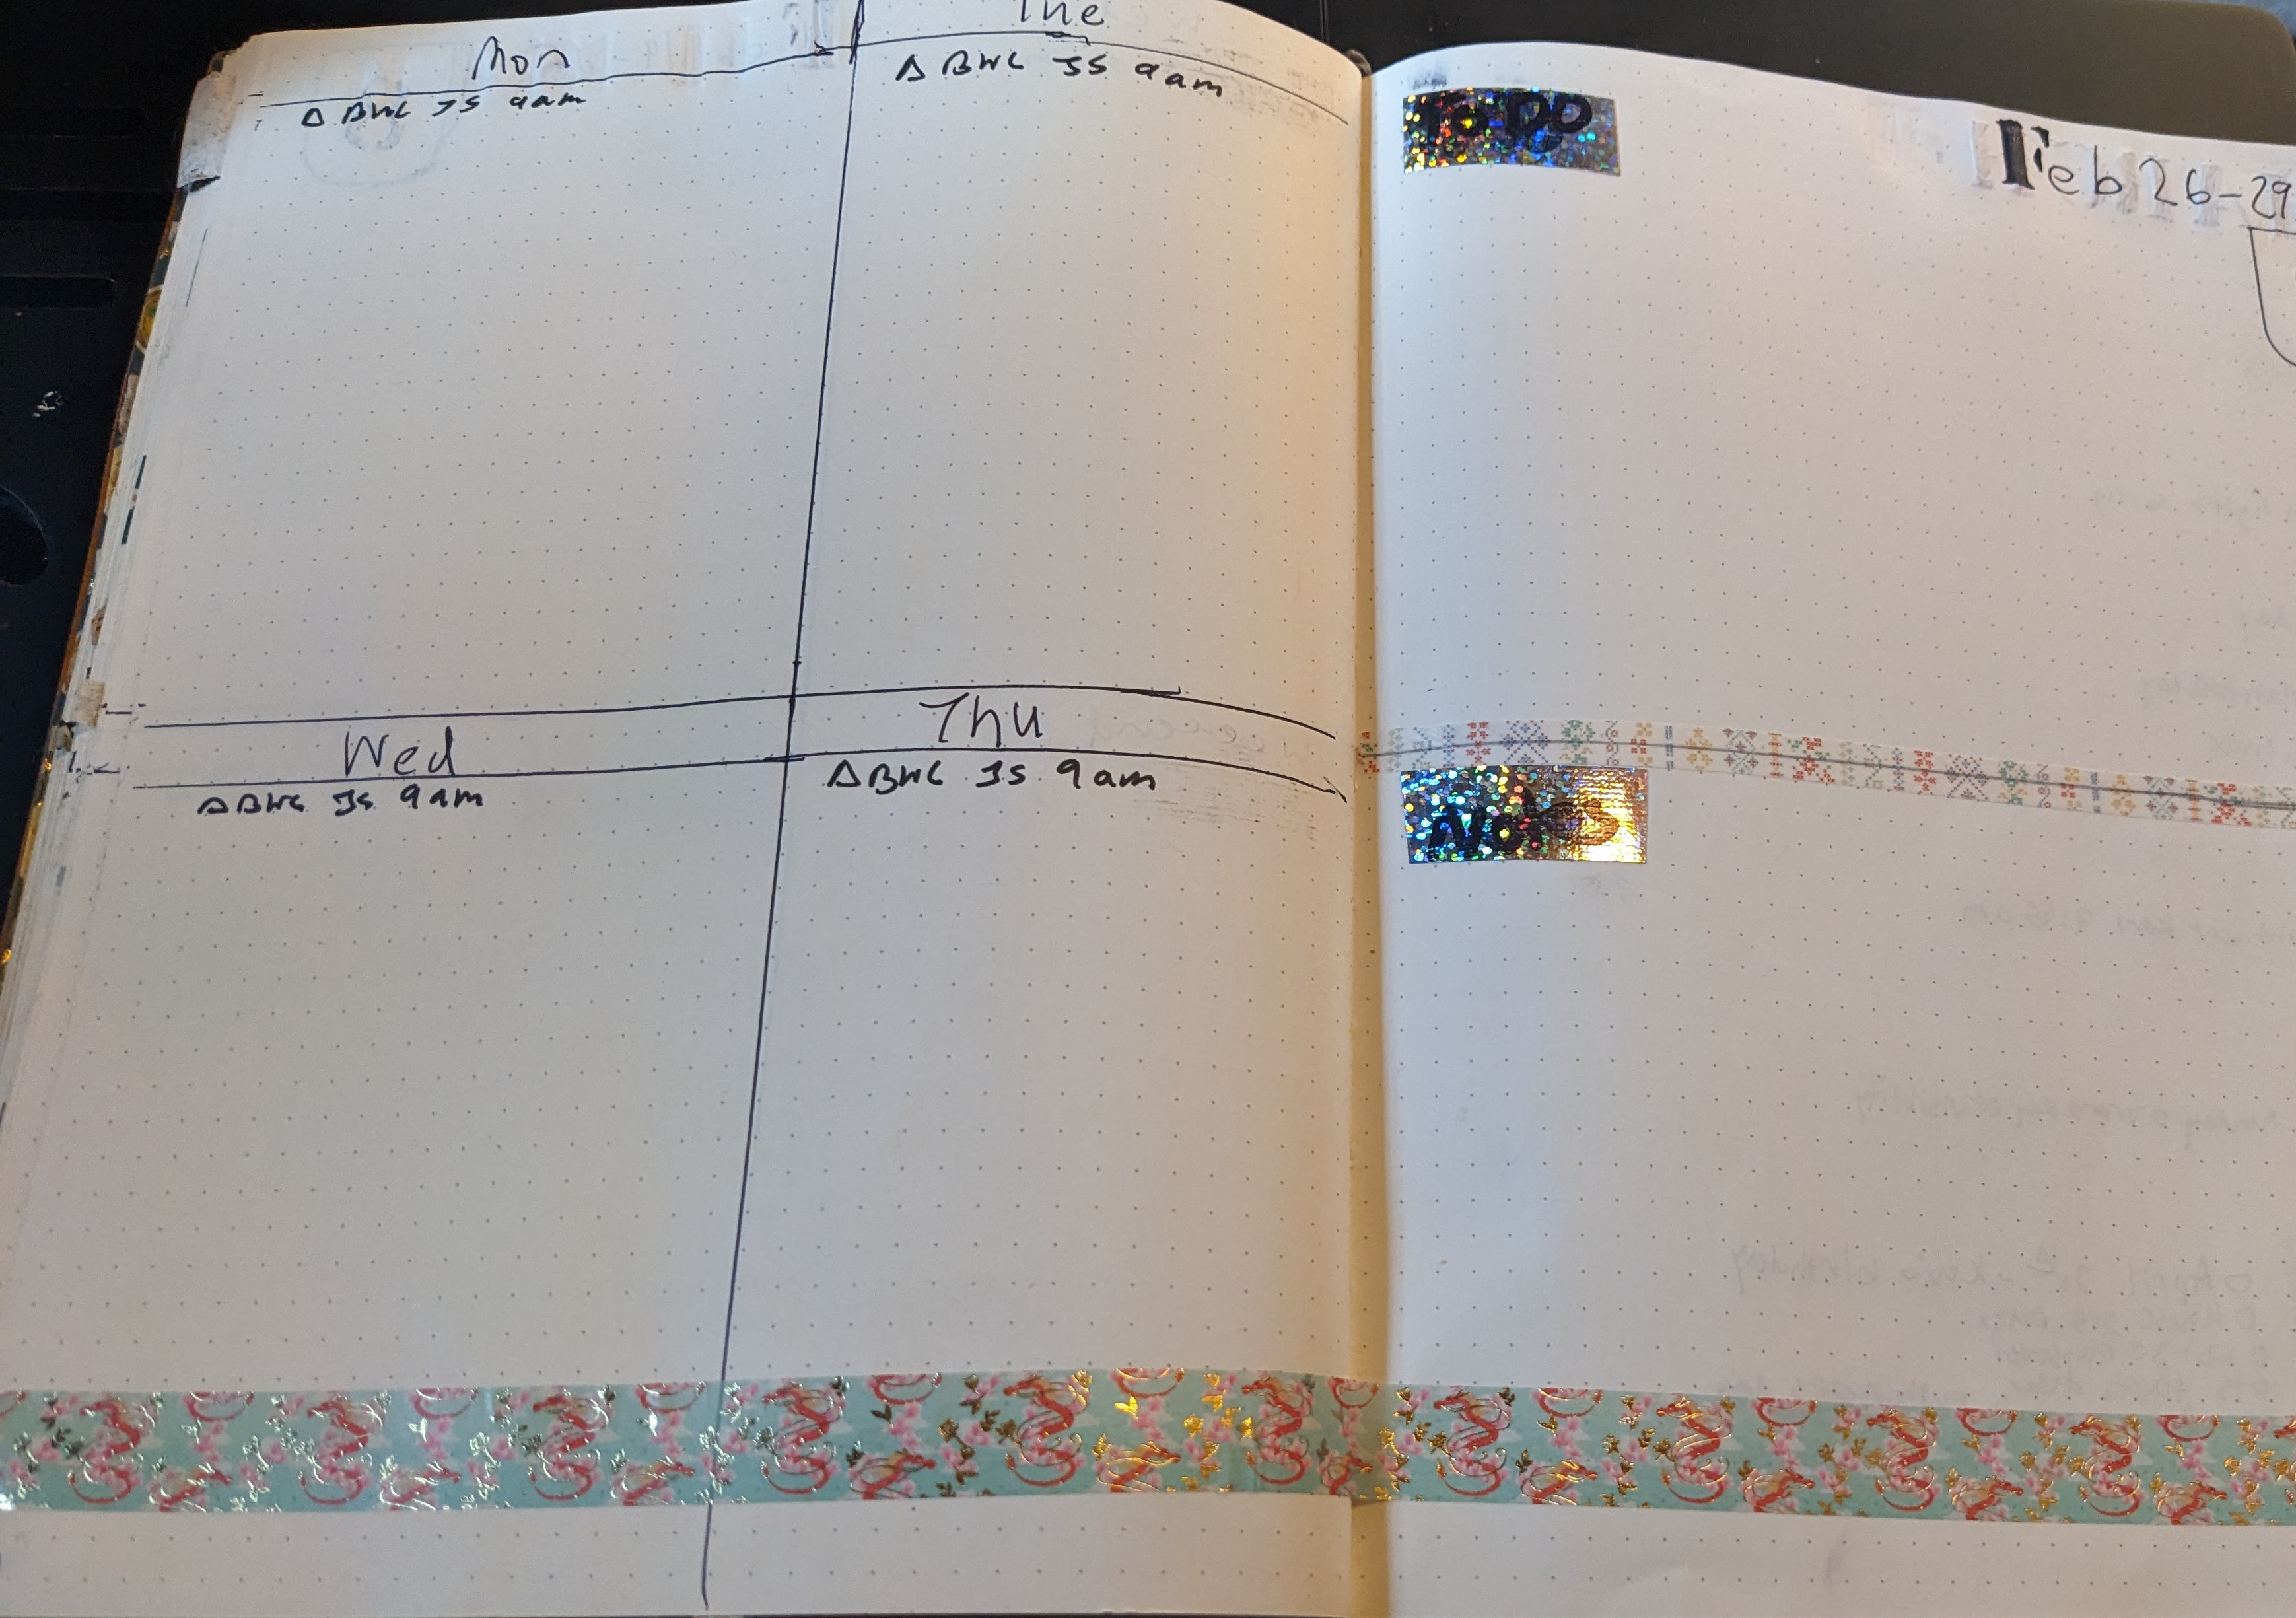 Mon
Δ BWC JS 9am
Tue
Δ BWC JS 9am
Wed
Δ BWC JS 9am
Thu
Δ BWC JS 9am
To DO
Feb 26-29
Notes